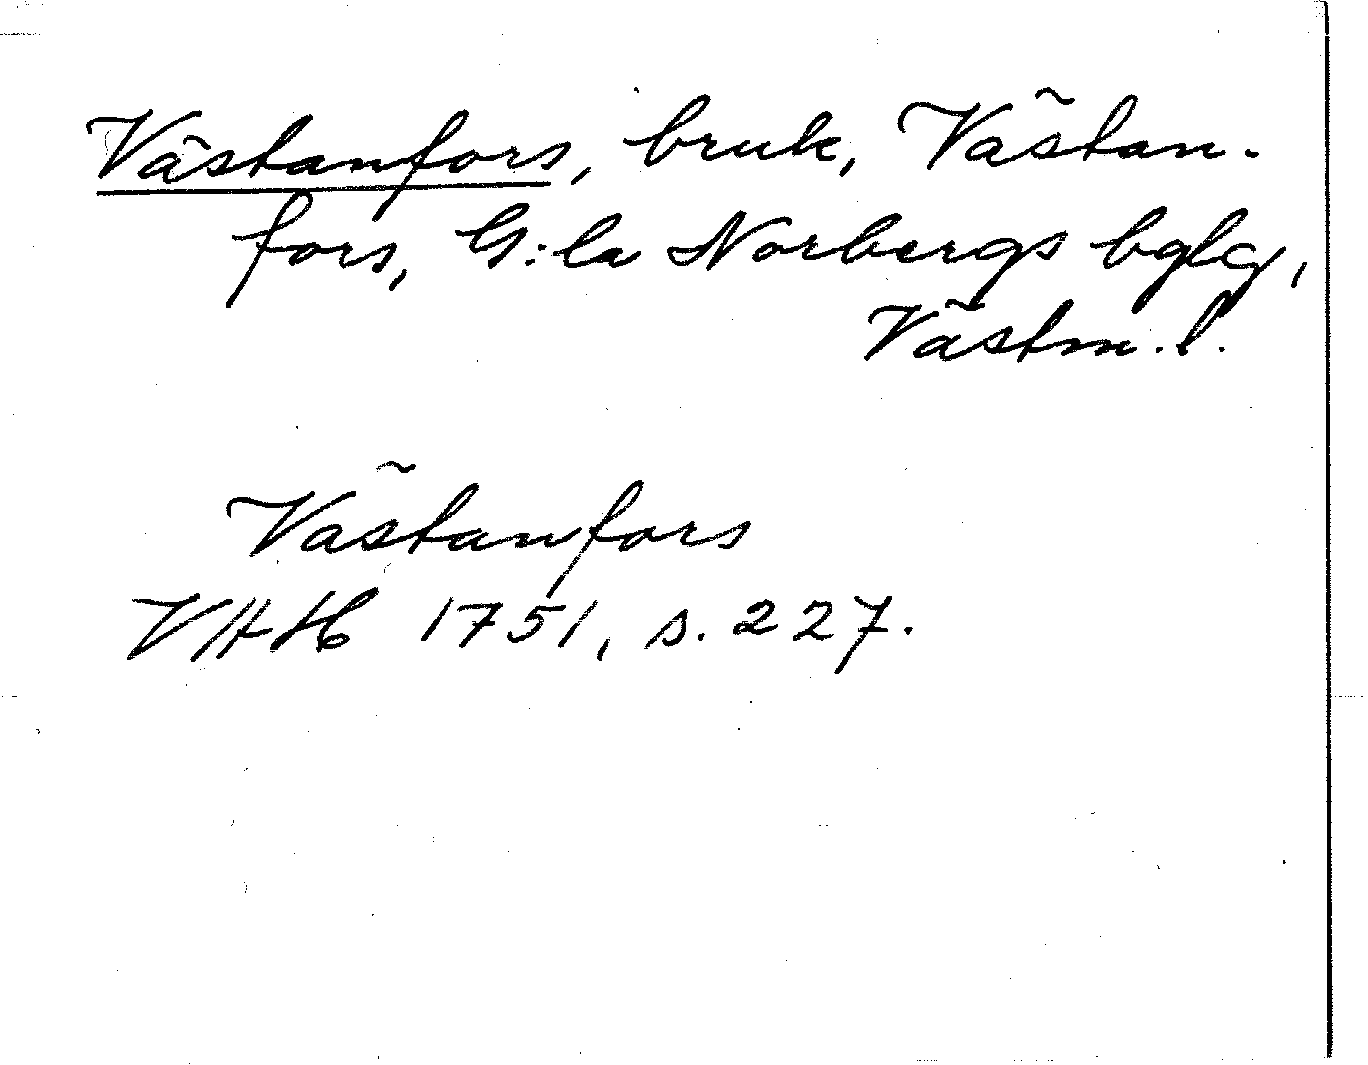 Västanfors, bruk, Västan-
fors, G:la Norbergs bglg,
Västm. l.
Västanfors
VAH 1751, s. 227.